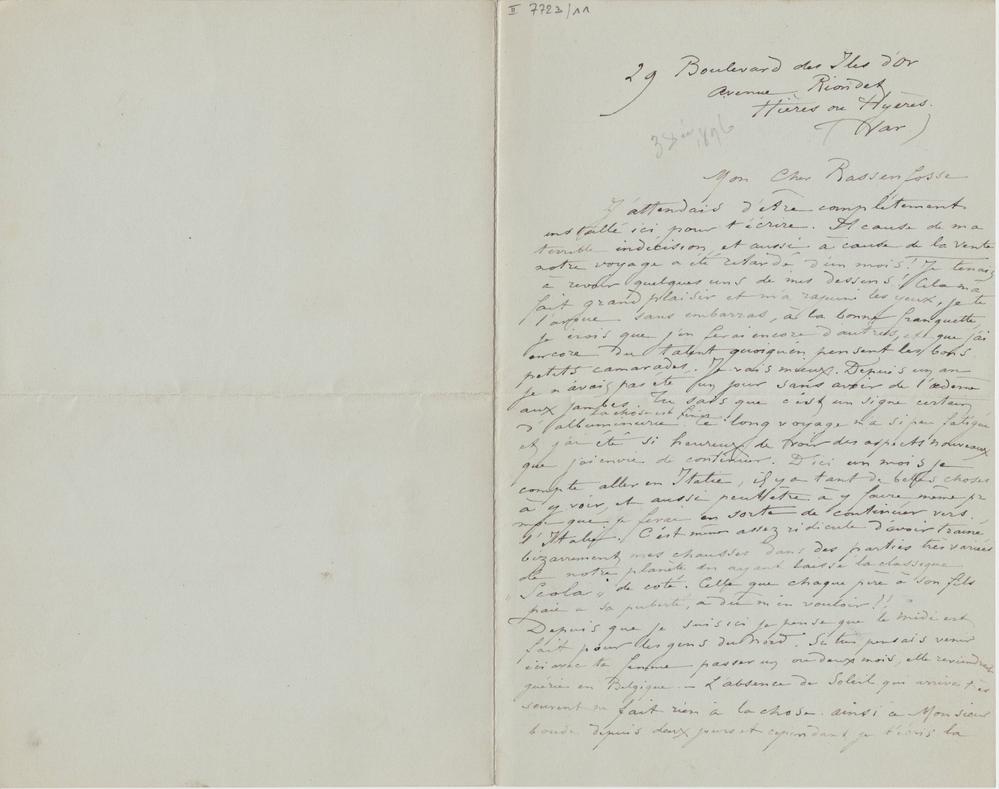 II 7723/11
29 Boulevard des Iles d'Or
Avenue Riondet
Hières ou Hyères.
(Var)
1896
Mon Cher Rassenfosse
J'attendais d'être complètement
installé ici pour t'écrire. A cause de ma
terrible indécision, et aussi à cause de la vente
notre voyage a été retardé d'un mois! Je tenais
à revoir quelques uns de mes dessins! Cela m'a
fait grand plaisir et m'a rajeuni les yeux, je te
l'avoue sans embarras, à la bonne franquette,
je crois que j'en ferai encore d'autres, et que j'ai
encore du talent quoiqu'en pensent les bons
petits camarades. Je vais mieux. Depuis un an
je n'avais pas été un jour sans avoir de l'œdème
aux jambes. Tu sais que c'est un signe certain
la chose est finie
d'albuminurie. Ce long voyage m'a si peu fatigué
et j'ai été si heureux de voir des aspects nouveaux
que j'ai envie de continuer. D'ici un mois je
compte aller en Italie, il y a tant de belles choses
à y voir, et aussi peutêtre à y faire même
que je ferai en sorte de continuer vers
l'Italie. C'est même assez ridicule d'avoir trainé
bizarrement mes chausses dans des parties très variées
de notre planète en ayant laissé la classique
"Scola" de coté. Celle que chaque père à son fils
paie à sa puberté, a dû m'en vouloir!!
Depuis que je suis ici je pense que le midi est
fait pour les gens du Nord. Si tu pensais venir
ici avec ta femme passer un ou deux mois, elle reviendrait
guérie en Belgique. – L'absence de Soleil qui arrive très
souvent ne fait rien à la chose. ainsi ce Monsieur
boude depuis deux jours et cependant je t'écris la